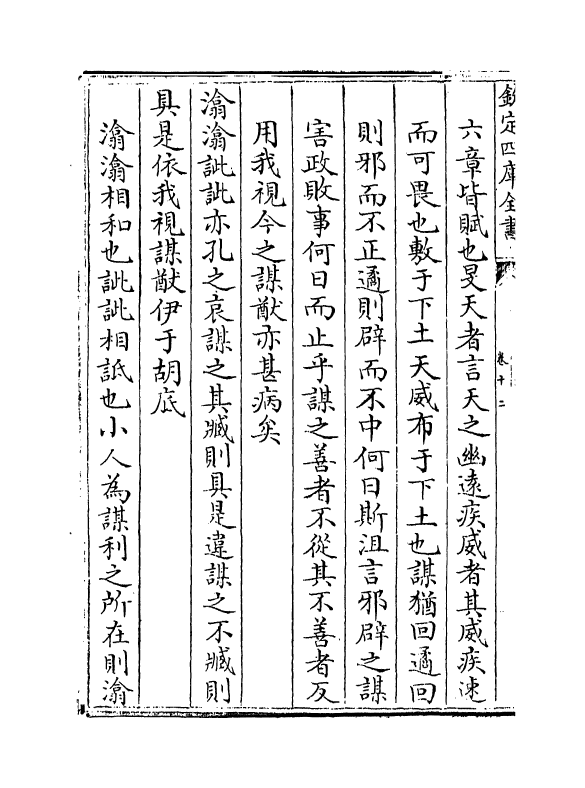 欽定四庫全書
卷十二
六章皆賦也旻天者言天之幽遠疾威者其威疾速
而可畏也敷于下土天威布于下土也謀猶回遹回
則邪而不正遹則辟而不中何日斯沮言邪辟之謀
害政敗事何日而止乎謀之善者不從其不善者反
用我視今之謀猷亦甚病矣
潝潝訿訿亦孔之哀謀之其臧則具是違謀之不臧則
具是依我視謀猷伊于胡底
潝潝相和也訿訿相詆也小人為謀利之所在則潝